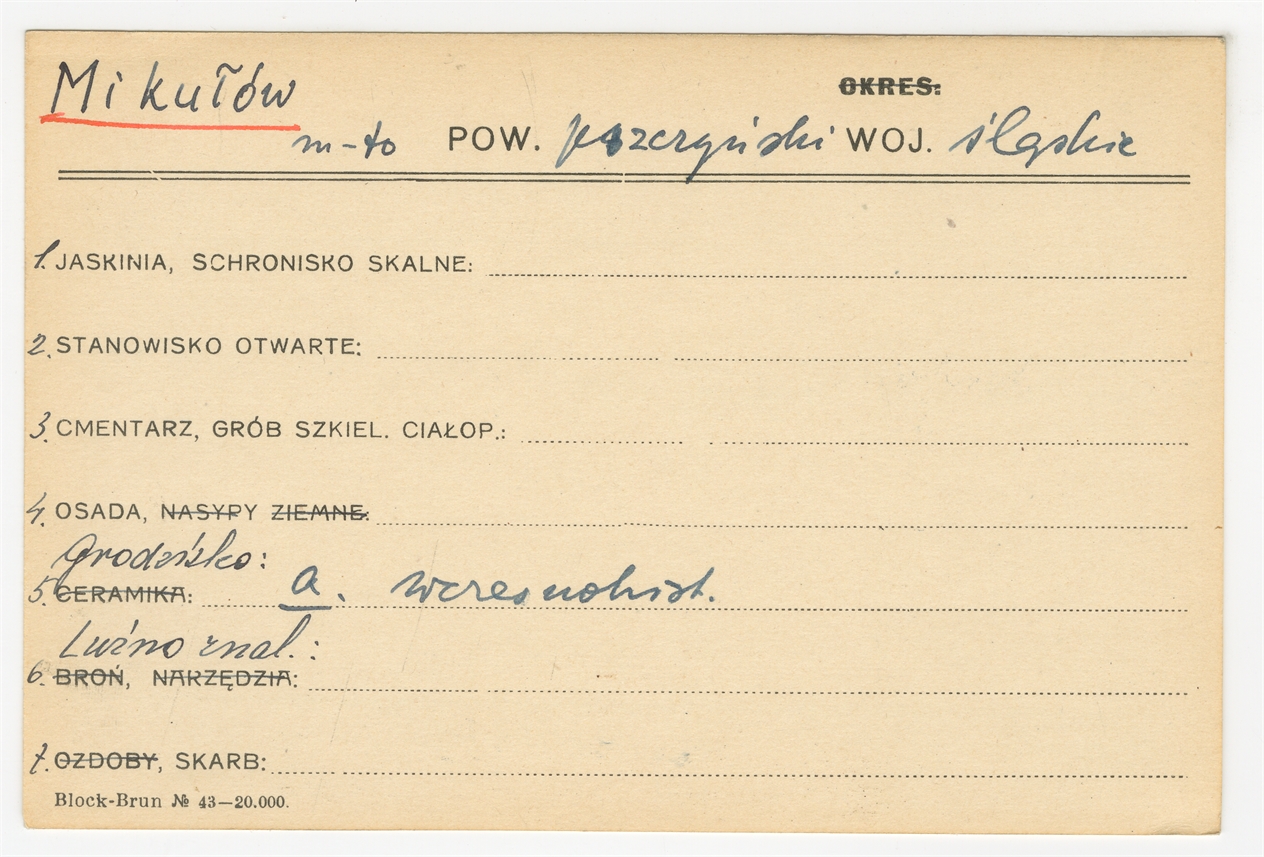 Mikułów
OKRES:
m-to POW. pszczyński WOJ. śląskie
1. JASKINIA, SCHRONISKO SKALNE:
2. STANOWISKO OTWARTE:
3. CMENTARZ, GRÓB SZKIEL. CIAŁOP.:
4. OSADA, NASYPY ZIEMNE:
Grodzisko:
5. CERAMIKA: a. wczesnohist.
Luźno znal.:
6. BROŃ, NARZĘDZIA:
7. OZDOBY, SKARB:
Block-Brun № 43—20.000.